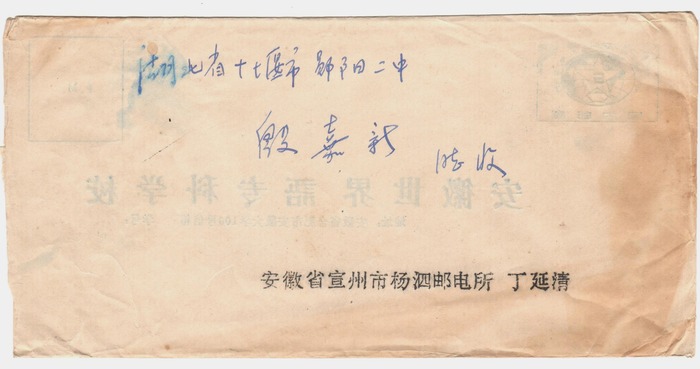 湖北省十堰市郧阳二中
殷嘉新 睦收
安徽世界語专科学校
安徽省宣州市杨泗邮电所 丁延清